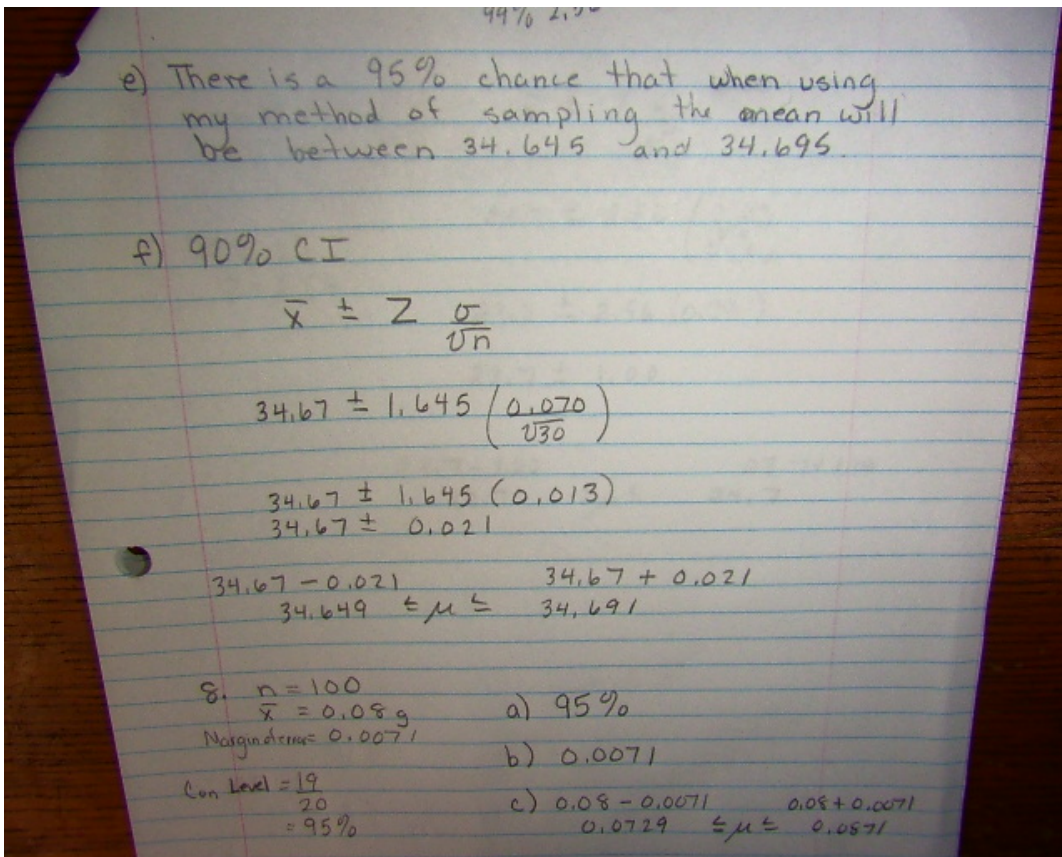 44%
e) There is a 95% chance that when using
my method of sampling the mean will
be between 34.645 and 34.695.
f) 90% CI
x̄ ± Z σ/√n
34.67 ± 1.645 (0.070/√30)
34.67 ± 1.645 (0.013)
34.67 ± 0.021
34.67 - 0.021 34.67 + 0.021
34.649 ≤ μ ≤ 34.691
8. n = 100
x̄ = 0.08 g
= 0.0071
Con Level = 19/20
= 95%
a) 95%
b) 0.0071
c) 0.08 - 0.0071 0.08 + 0.0071
0.0729 ≤ μ ≤ 0.0871